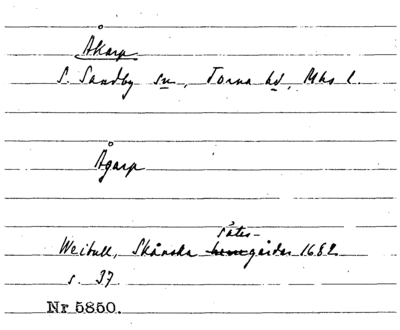 Åkarp
S. Sandby sn, Torna hd, Mhs l.
Ågarp
Weibull, Skånska sätesgårdar 1682
s. 37
Nr 5850.